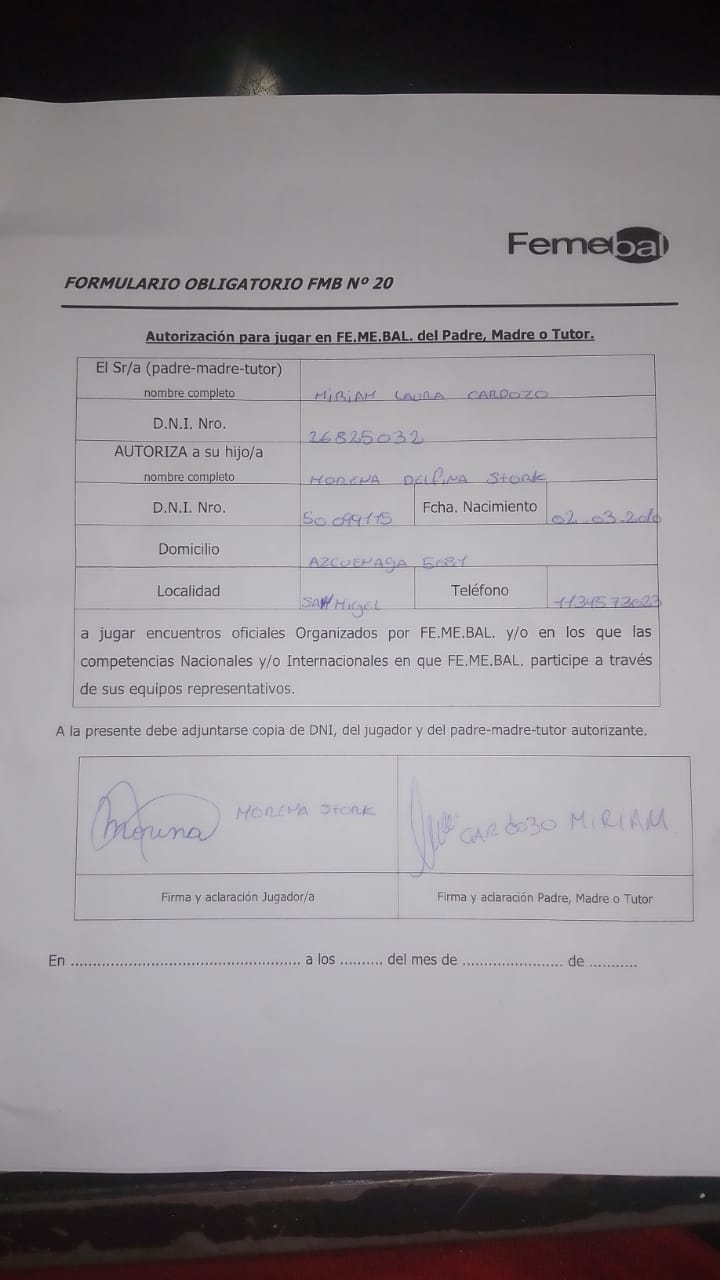 Femebal
FORMULARIO OBLIGATORIO FMB Nº 20
Autorización para jugar en FE.ME.BAL. del Padre, Madre o Tutor.
El Sr/a (padre-madre-tutor)
nombre completo MIRIAM LAURA CARDOZO
D.N.I. Nro. 26825032
AUTORIZA a su hijo/a
nombre completo MORENA DELFINA STORK
D.N.I. Nro. Fcha. Nacimiento 02.03.2010
Domicilio AZCUENAGA
Localidad SAN MIGEL Teléfono 1134573023
a jugar encuentros oficiales Organizados por FE.ME.BAL. y/o en los que las
competencias Nacionales y/o Internacionales en que FE.ME.BAL. participe a través
de sus equipos representativos.
A la presente debe adjuntarse copia de DNI, del jugador y del padre-madre-tutor autorizante.
Moruna MORENA STORK CARDOZO MIRIAM
Firma y aclaración Jugador/a Firma y aclaración Padre, Madre o Tutor
En .................................................. a los ......... del mes de ...................... de ...........